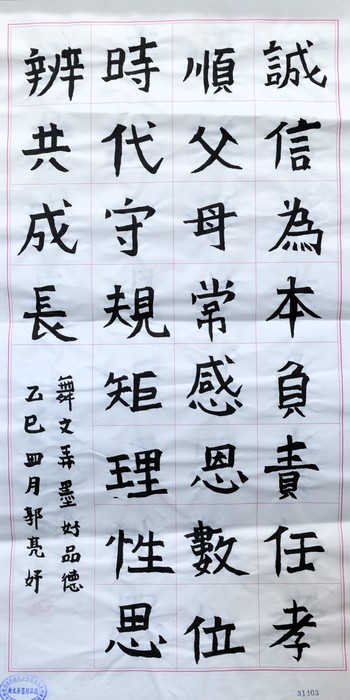 誠信為本負責任孝
順父母常感恩數位
時代守規矩理性思
辨共成長
舞文弄墨好品德
乙巳四月郭亮妤
31103